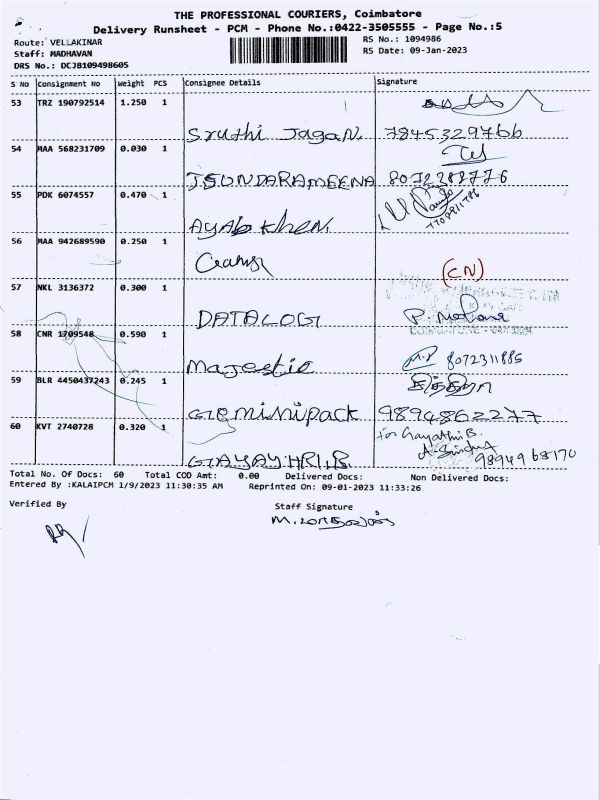 THE PROFESSIONAL COURIERS, Coimbatore
Delivery Runsheet - PCM - Phone No.:0422-3505555 - Page No.:5
Route: VELLAKINAR
RS No.: 1094986
Staff: MADHAVAN
RS Date: 09-Jan-2023
DRS No.: DCJB109498605
S No Consignment No Weight PCS Consignee Details Signature
53 TRZ 190792514 1.250 1
Sruthi Jagan. 7845329766
54 MAA 568231709 0.030 1
J.SUNDARAMEENA
55 PDK 6074557 0.470 1
Ayab Khen.
56 MAA 942689590 0.250 1
(CN)
57 NKL 3136372 0.300 1
DATALOGI P. Mohana
58 CNR 1709548 0.590 1
Majestic 8072311885
59 BLR 4450437243 0.245 1
Geminipack 9894862277
60 KVT 2740728 0.320 1
for Gayathri B.
GAYAYHRI.B. 9894968170
Total No. Of Docs: 60 Total COD Amt: 0.00 Delivered Docs: Non Delivered Docs:
Entered By :KALAIPCM 1/9/2023 11:30:35 AM Reprinted On: 09-01-2023 11:33:26
Verified By
Staff Signature